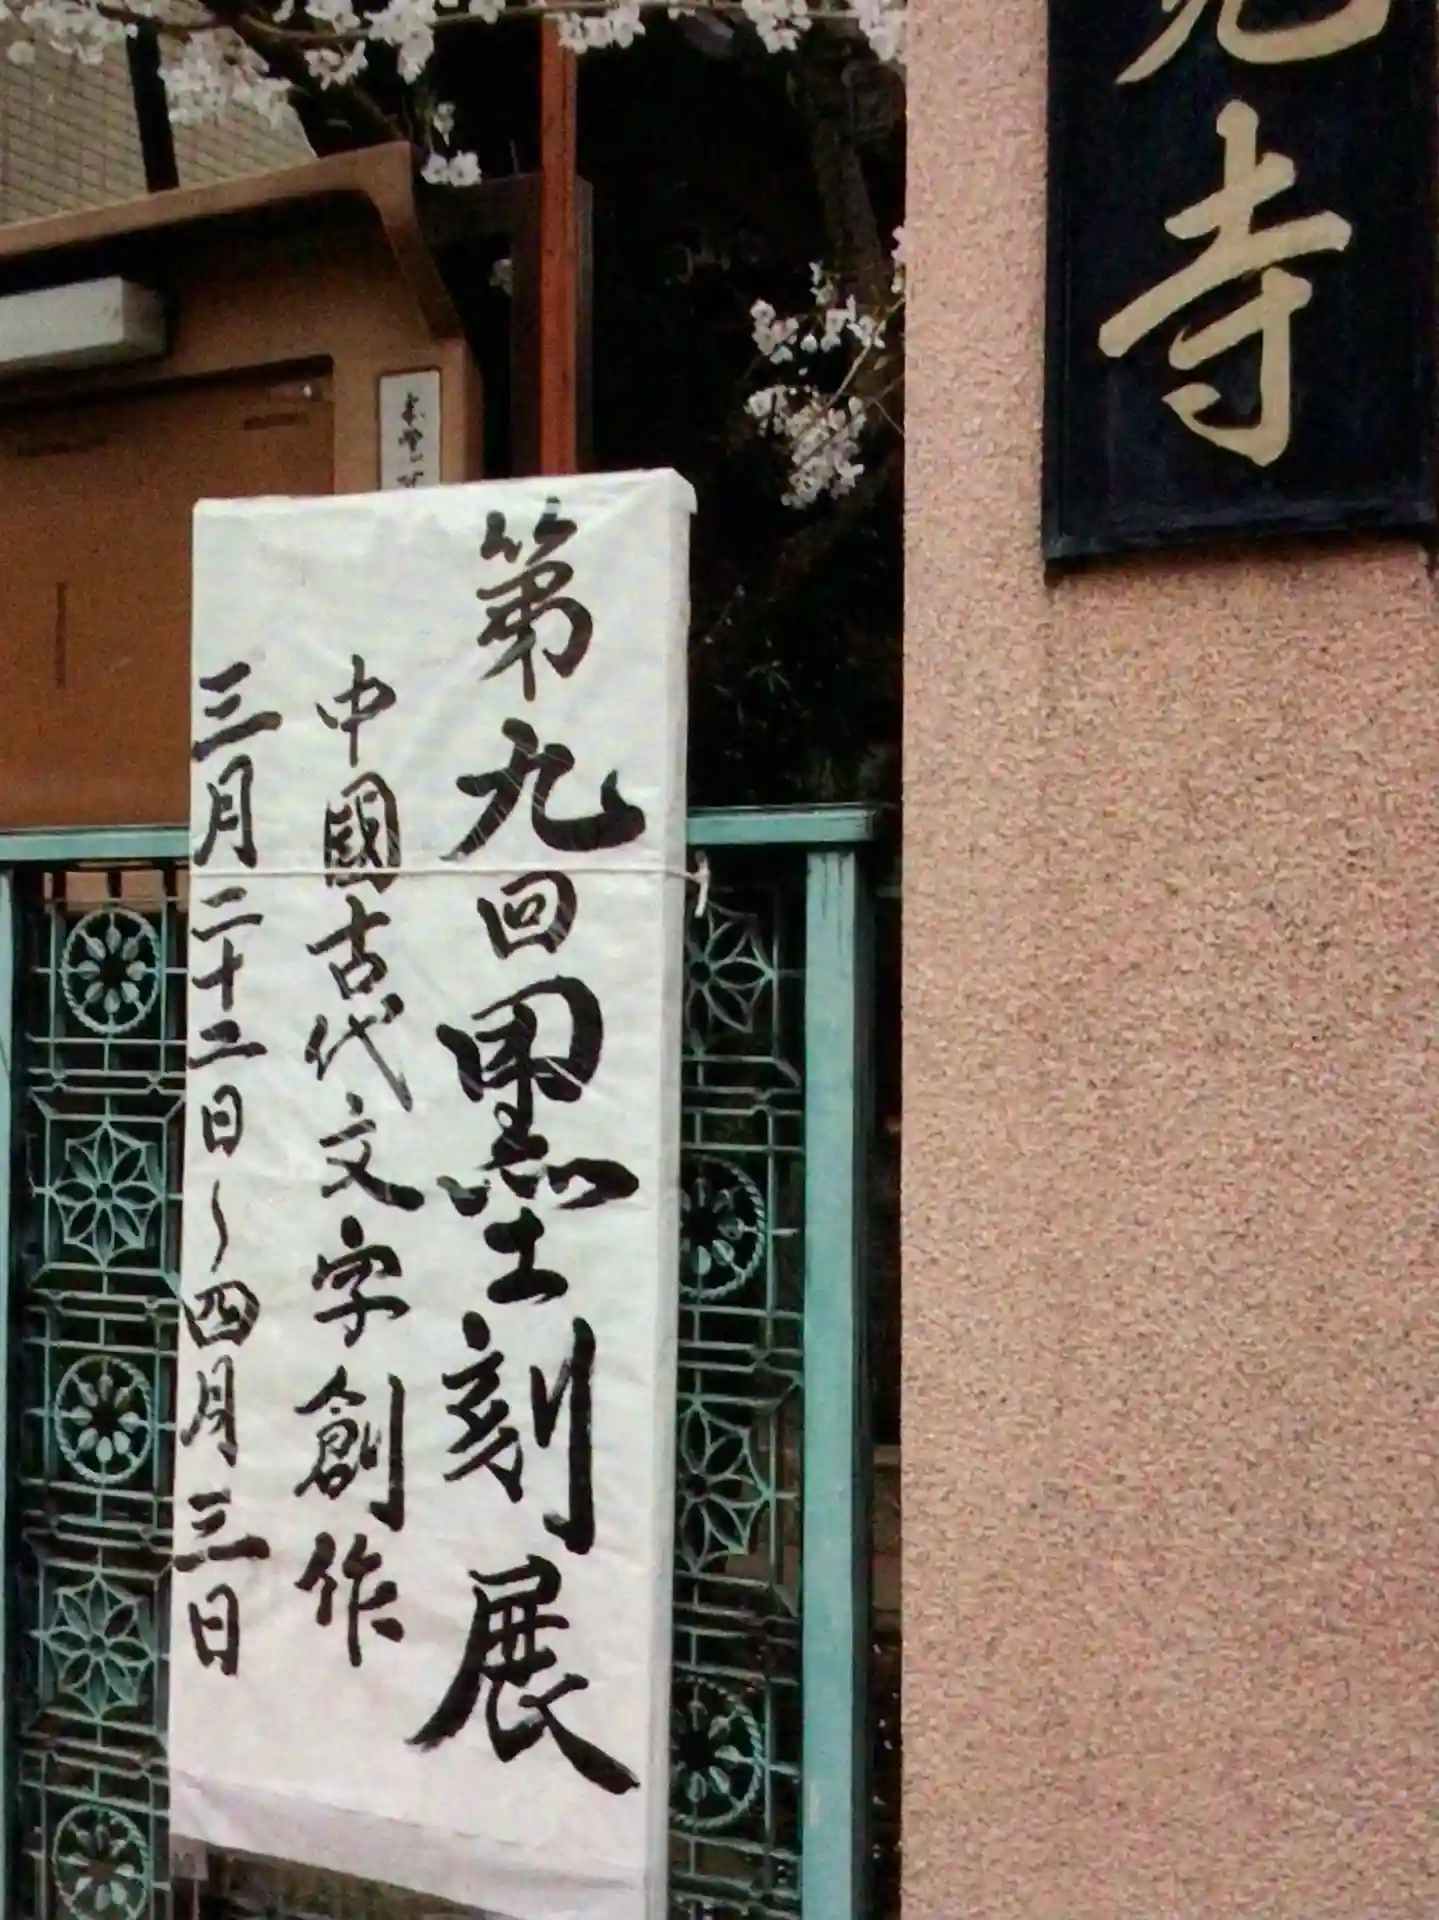 寺
第九回墨刻展
中國古代文字創作
三月二十二日〜四月三日